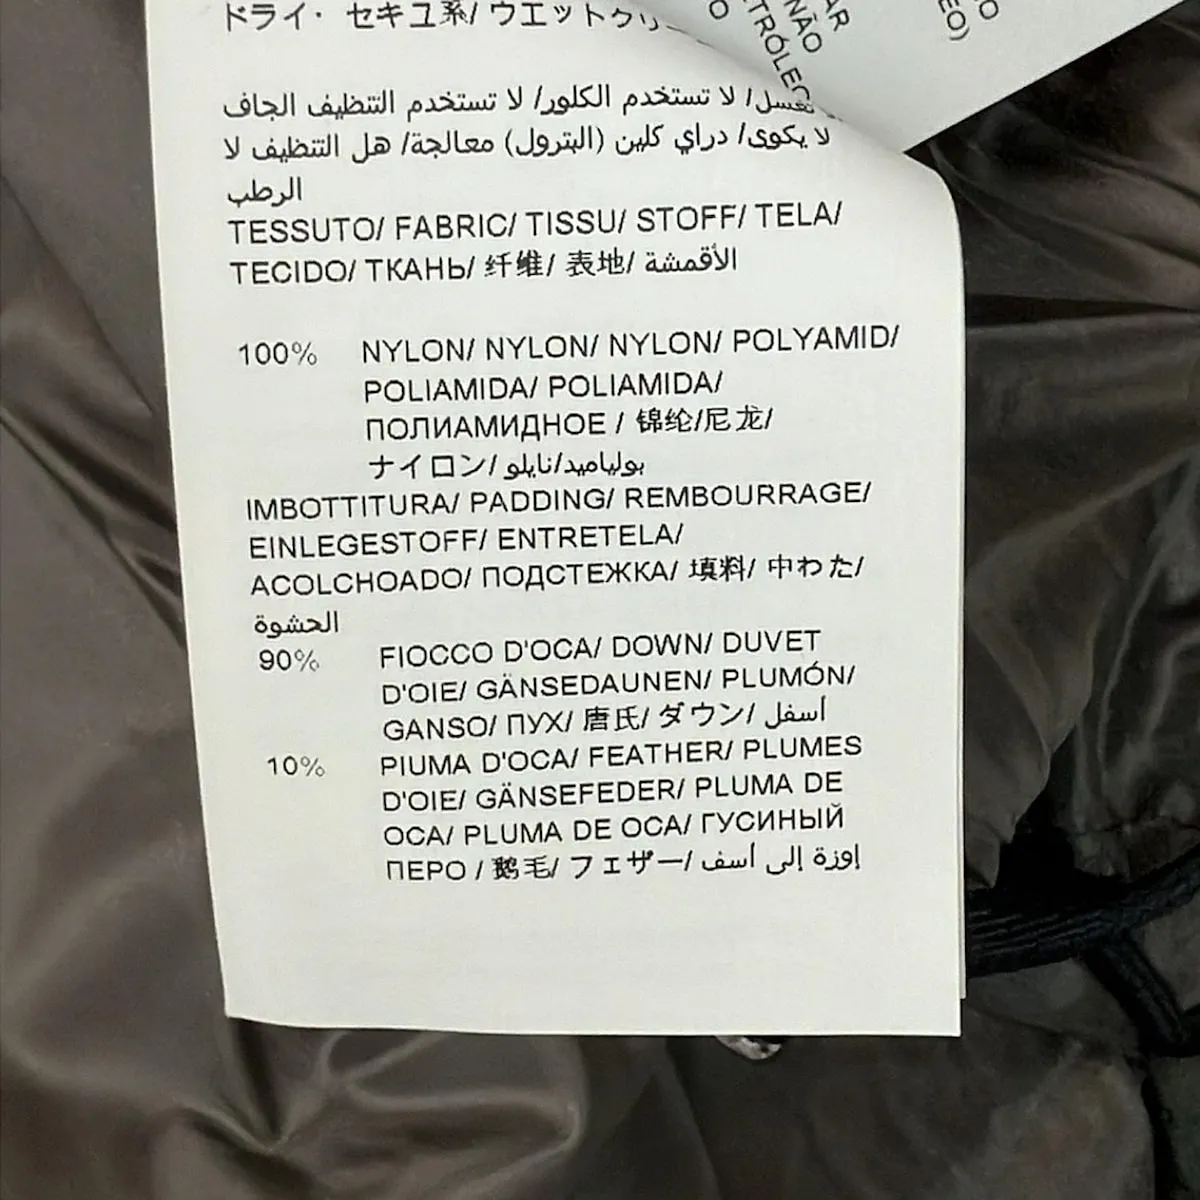 ドライ· セキユ系/ ウエットクリ
AR
NÃO
TRÓLEO
O
EO)
لا تغسل/ لا تستخدم الكلور/ لا تستخدم التنظيف الجاف
لا يكوى/ دراي كلين (البترول) معالجة/ هل التنظيف لا
الرطب
TESSUTO/ FABRIC/ TISSU/ STOFF/ TELA/
TECIDO/ ТКАНЬ/ 纤维/ 表地/ الأقمشة
100% NYLON/ NYLON/ NYLON/ POLYAMID/
POLIAMIDA/ POLIAMIDA/
ПОЛИАМИДНОЕ / 锦纶/尼龙/
ナイロン/ بولياميد/نايلو
IMBOTTITURA/ PADDING/ REMBOURRAGE/
EINLEGESTOFF/ ENTRETELA/
ACOLCHOADO/ ПОДСТЕЖКА/ 填料/ 中わた/
الحشوة
90% FIOCCO D'OCA/ DOWN/ DUVET
D'OIE/ GÄNSEDAUNEN/ PLUMÓN/
GANSO/ ПУХ/ 唐氏/ ダウン/ أسفل
10% PIUMA D'OCA/ FEATHER/ PLUMES
D'OIE/ GÄNSEFEDER/ PLUMA DE
OCA/ PLUMA DE OCA/ ГУСИНЫЙ
ПЕРО / 鹅毛/ フェザー/ إوزة إلى أسف